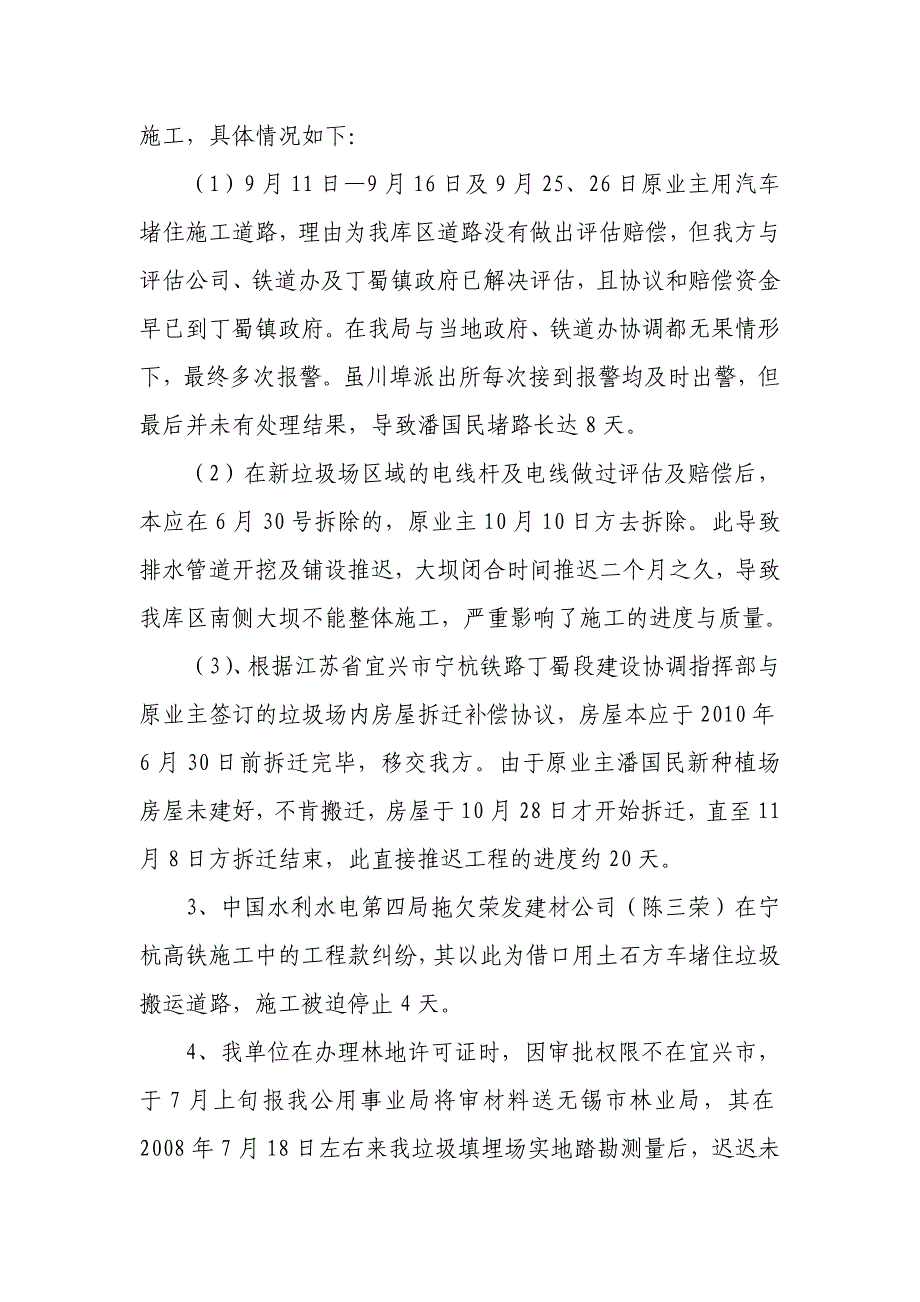 施工，具体情况如下：
（1）9月11日—9月16日及9月25、26日原业主用汽车
堵住施工道路，理由为我库区道路没有做出评估赔偿，但我方与
评估公司、铁道办及丁蜀镇政府已解决评估，且协议和赔偿资金
早已到丁蜀镇政府。在我局与当地政府、铁道办协调都无果情形
下，最终多次报警。虽川埠派出所每次接到报警均及时出警，但
最后并未有处理结果，导致潘国民堵路长达8天。
（2）在新垃圾场区域的电线杆及电线做过评估及赔偿后，
本应在6月30号拆除的，原业主10月10日方去拆除。此导致
排水管道开挖及铺设推迟，大坝闭合时间推迟二个月之久，导致
我库区南侧大坝不能整体施工，严重影响了施工的进度与质量。
（3）、根据江苏省宜兴市宁杭铁路丁蜀段建设协调指挥部与
原业主签订的垃圾场内房屋拆迁补偿协议，房屋本应于2010年
6月30日前拆迁完毕，移交我方。由于原业主潘国民新种植场
房屋未建好，不肯搬迁，房屋于10月28日才开始拆迁，直至11
月8日方拆迁结束，此直接推迟工程的进度约20天。
3、中国水利水电第四局拖欠荣发建材公司（陈三荣）在宁
杭高铁施工中的工程款纠纷，其以此为借口用土石方车堵住垃圾
搬运道路，施工被迫停止4天。
4、我单位在办理林地许可证时，因审批权限不在宜兴市，
于7月上旬报我公用事业局将审材料送无锡市林业局，其在
2008年7月18日左右来我垃圾填埋场实地踏勘测量后，迟迟未